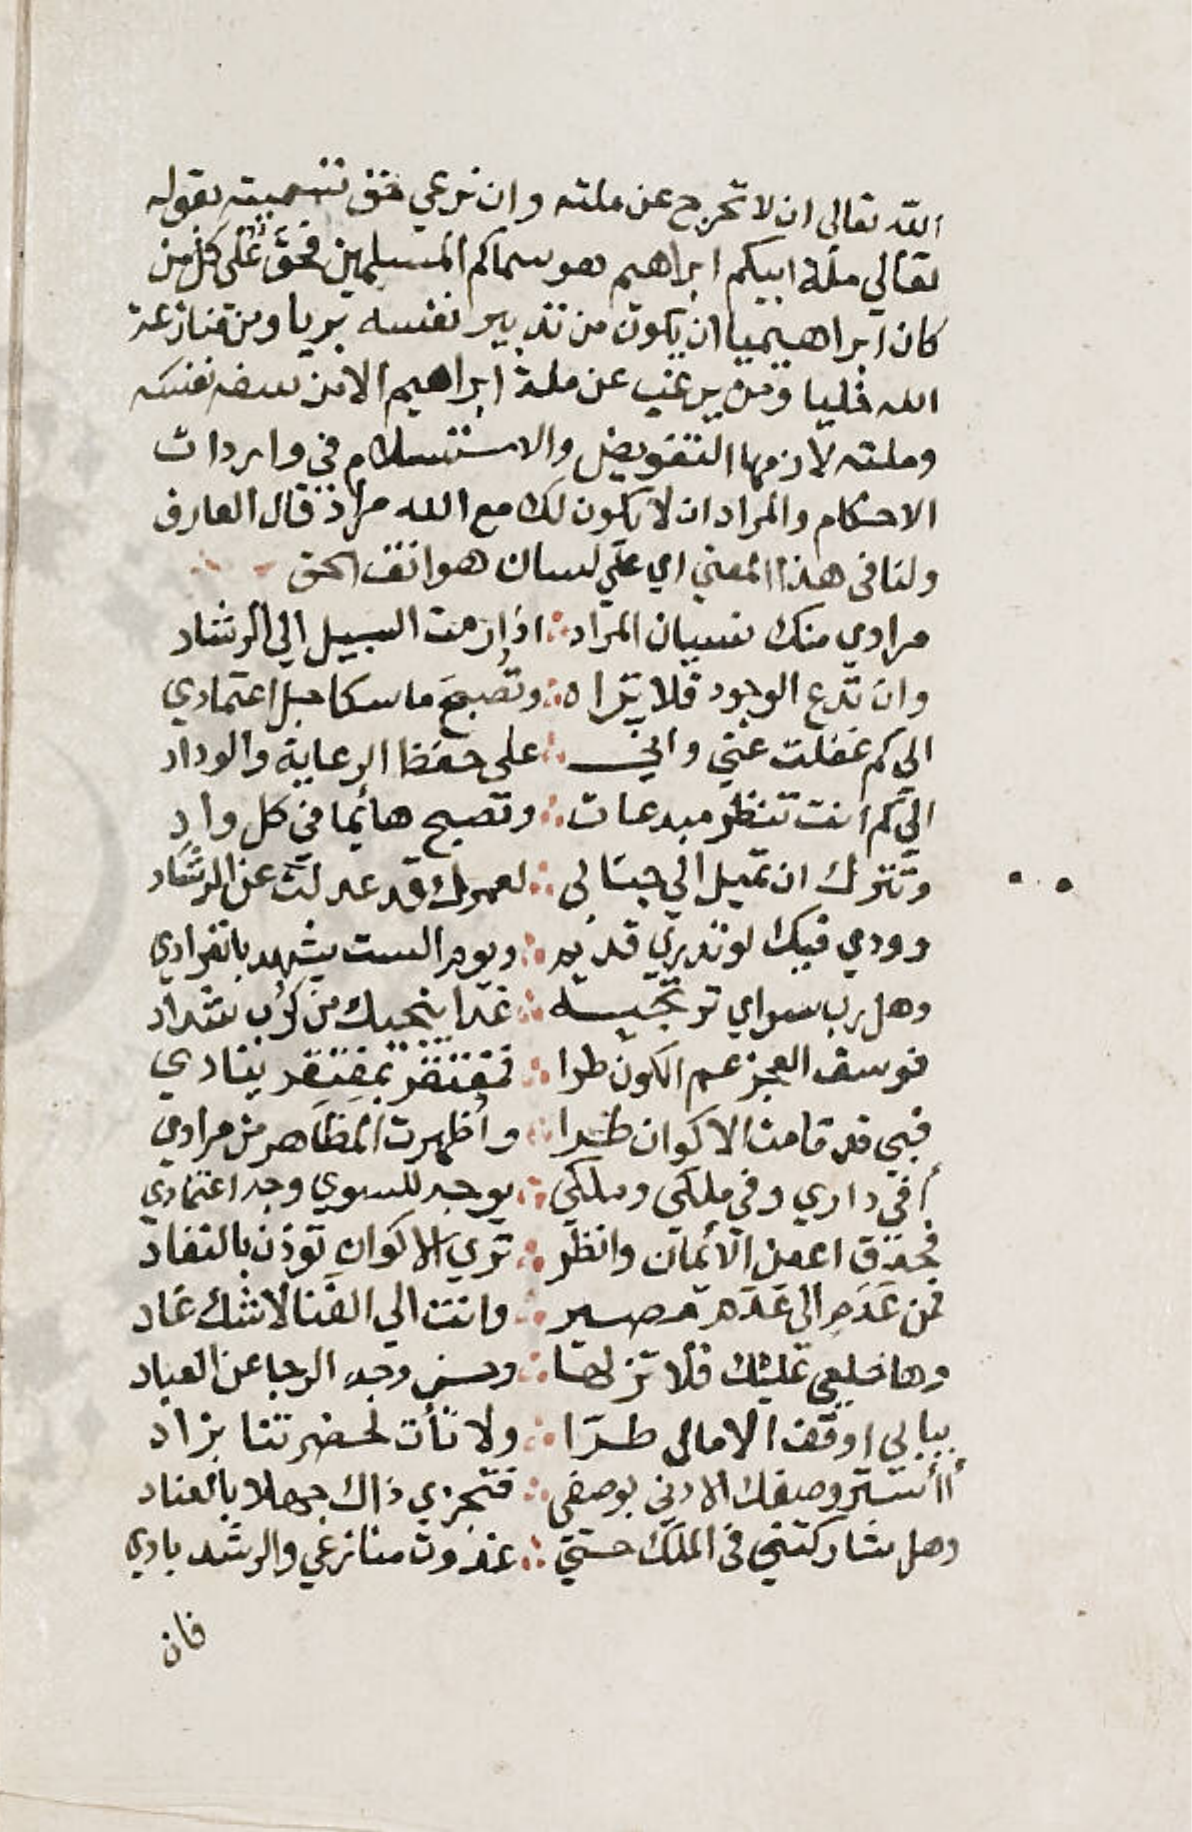 الله تعالى ان لا تخرج عن ملته وان نرعي حق تسميته بقوله
تعالي ملة ابيكم ابراهيم هو سماكم المسلمين فحق علي كل من
كان ابراهيميا ان يكون من تدبير نفسه بريا ومن منازعة
الله خليا ومن يرغب عن ملة ابراهيم الا من سفه نفسه
وملته لازمها التفويض والاستسلام في واردات
الاحكام والمراد ان لا يكون لك مع الله مراد قال العارف
ولنا في هذا المعني اي علي لسان هواتف الحق
مرادي منك نسيان المراد ∴ اذا رمت السبيل الي الرشاد
وان تدع الوجود فلا يراه ∴ وتصبح ماسكا حبل اعتمادي
الي كم غفلت عني واني ∴ علي حفظ الرعاية والوداد
الي كم انت تنظر مبدعات ∴ وتصبح هائما في كل واد
وتترك ان تميل الي جنابي ∴ لعمرك قد عدلت عن الرشاد
وودي فيك لو تدري قديم ∴ ويوم الست يشهد بانفرادي
وهل رب سواي ترتجيه ∴ غدا ينجيك من كرب شداد
فوسف العجز عم الكون طرا ∴ فمفتقر بمفتقر ينادي
فبي قد قامت الاكوان طرا ∴ وأظهرت المظاهر من مرادي
أفي داري وفي ملكي وملكي ∴ يوجد للسوي وجه اعتمادي
فحدق اعين الأيمان وانظر ∴ تري الاكوان توذن بالنفاد
فمن عدم الى عدم مصير ∴ وانت الي الفنا لا شك غاد
وها خلعي عليك فلا تزلها ∴ وصن وجه الرجا عن العباد
ببابي اوقف الامال طرا ∴ ولا تأت لحضرتنا بزاد
أأستر وصفك الادني بوصفي ∴ فتجزي ذاك جهلا بالعناد
وهل شاركتني في الملك حتي ∴ غدوت منازعي والرشد بادي
فان